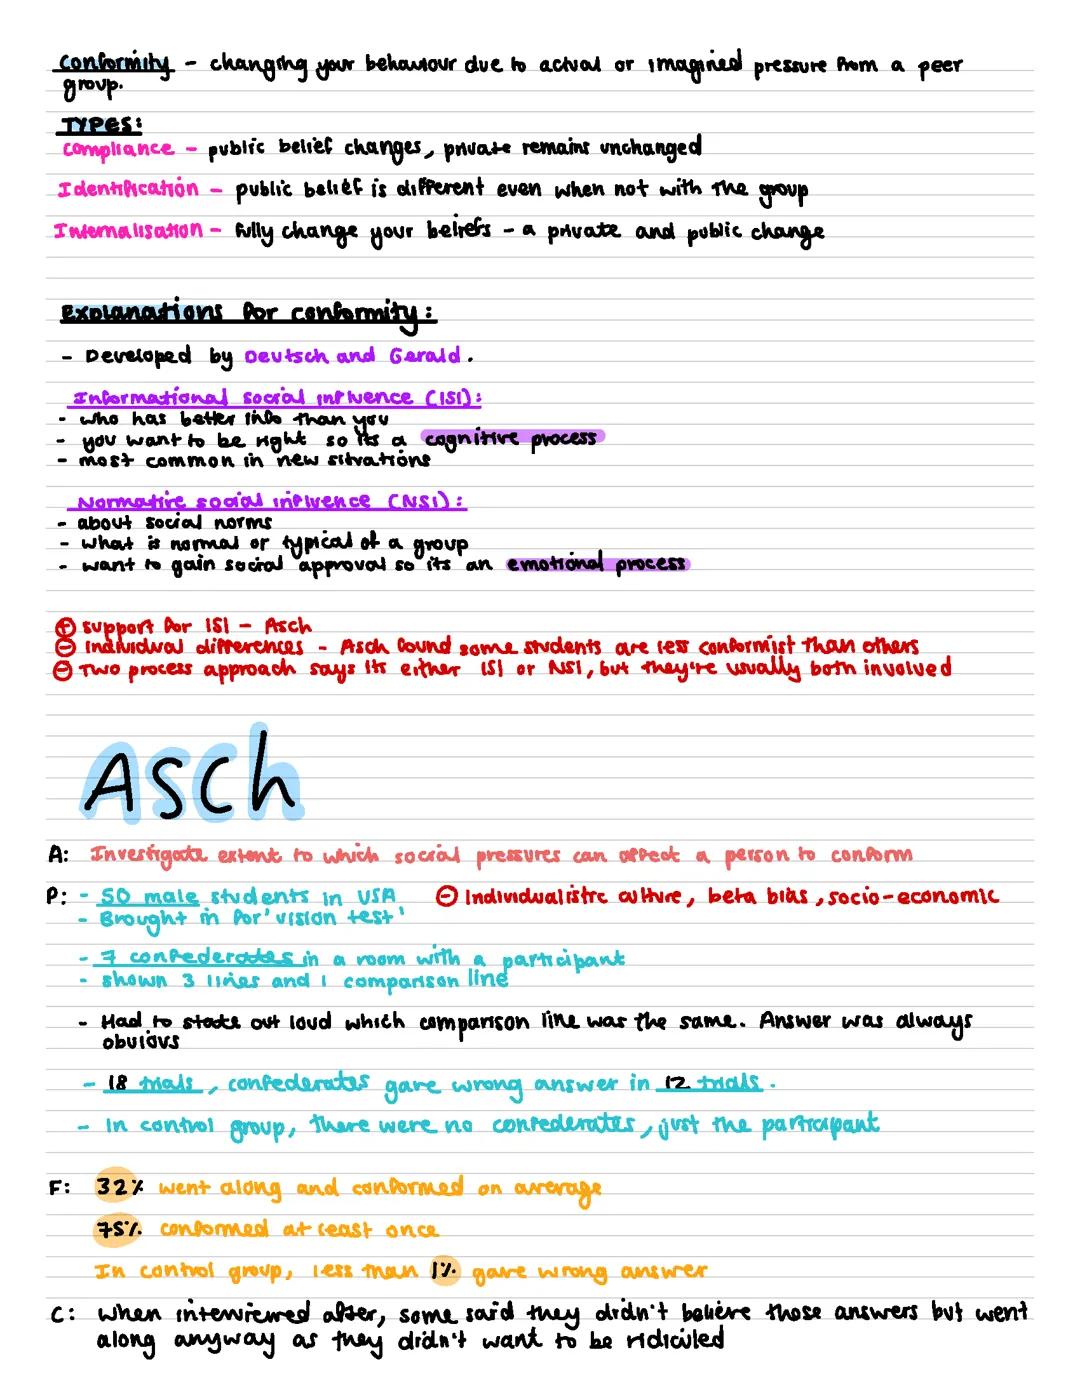 Conformity - changing your behaviour due to actual or imagined pressure from a peer
group.
TYPES:
Compliance - public belief changes, private remains unchanged
Identification - public belief is different even when not with the group
Internalisation - fully change your beliefs - a private and public change
Explanations for conformity:
- Developed by Deutsch and Gerald.
Informational social influence (ISI):
- who has better info than you
- you want to be right so its a cognitive process
- most common in new situations
Normative social influence (NSI):
- about social norms
- what is normal or typical of a group
- want to gain social approval so its an emotional process
⊕ support for ISI - Asch
⊖ Individual differences - Asch found some students are less conformist than others
⊖ Two process approach says its either ISI or NSI, but they're usually both involved
Asch
A: Investigate extent to which social pressures can affect a person to conform
P: - 50 male students in USA ⊖ Individualistic culture, beta bias, socio-economic
- Brought in for 'vision test'
- 7 confederates in a room with a participant
- shown 3 lines and 1 comparison line
- Had to state out loud which comparison line was the same. Answer was always
obvious
- 18 trials, confederates gave wrong answer in 12 trials.
- In control group, there were no confederates, just the participant
F: 32% went along and conformed on average
75% conformed at least once
In control group, less than 1% gave wrong answer
C: When interviewed after, some said they didn't believe those answers but went
along anyway as they didn't want to be ridiculed